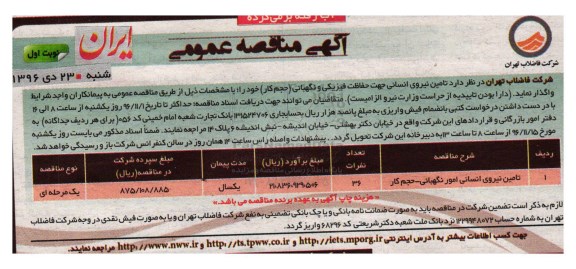 آب رفته برمی‌گردد
آگهی مناقصه عمومی
ایران
نوبت اول
شنبه ۲۳ دی ۱۳۹۶
شرکت فاضلاب تهران
شرکت فاضلاب تهران در نظر دارد تامین نیروی انسانی جهت حفاظت فیزیکی و نگهبانی (حجم کار) خود را با مشخصات ذیل از طریق مناقصه عمومی به پیمانکاران واجد شرایط
واگذار نماید. (دارا بودن تاییدیه از حراست وزارت نیرو الزامیست) متقاضیان می توانند جهت دریافت اسناد مناقصه حداکثر تا تاریخ ۹۶/۱۱/۱ روز یکشنبه از ساعت ۸ الی ۱۶
با در دست داشتن درخواست کتبی بانضمام فیش واریزی به مبلغ پانصد هزار ریال بحساب جاری ۱۳۵۲۴۲۷۰۶ بانک تجارت شعبه امام خمینی کد ۰۵۶ (برای هر ردیف جداگانه) به
دفتر امور بازرگانی و قراردادهای این شرکت واقع در خیابان دکتر بهشتی- خیابان اندیشه - نبش اندیشه ۶ پلاک ۱۴ مراجعه نمایند. ضمناً اسناد مذکور می بایست روز یکشنبه
مورخ ۹۶/۱۱/۱۵ از ساعت ۸ تا ساعت ۱۳ به دبیرخانه این شرکت تحویل گردد. پیشنهادات واصله راس ساعت ۱۴ همان روز در سالن کنفرانس شرکت باز و رسیدگی خواهد شد.
ردیف شرح مناقصه تعداد نفرات مبلغ برآورد (ریال) مدت پیمان مبلغ سپرده شرکت در مناقصه (ریال) نوع مناقصه
۱ تامین نیروی انسانی امور نگهبانی-حجم کار ۳۶ یکسال ۸۷۵/۱۰۸/۸۸۵ یک مرحله ای
«هزینه چاپ آگهی به عهده برنده مناقصه می باشد.»
لازم به ذکر است تضمین شرکت در مناقصه باید به صورت ضمانت نامه بانکی و یا چک بانکی تضمینی به نفع شرکت فاضلاب تهران و یا به صورت فیش نقدی در وجه شرکت فاضلاب
تهران به شماره حساب نزد بانک ملت شعبه دکتر شریعتی کد ۶۸۲۹۶ واریز گردد.
جهت کسب اطلاعات بیشتر به آدرس اینترنتی http://iets.mporg.ir و http://ts.tpww.co.ir و http://www.nww.ir مراجعه نمایند.